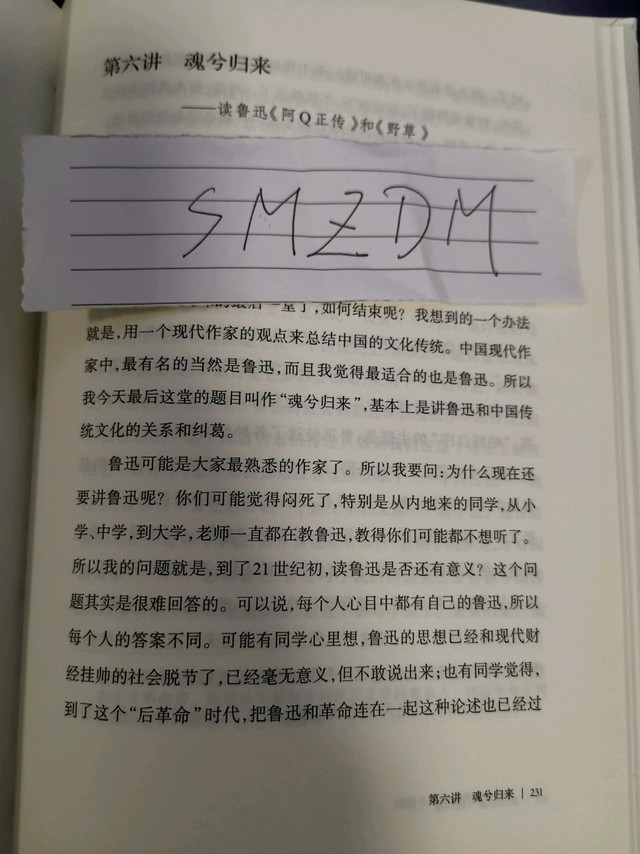 第六讲 魂兮归来
——读鲁迅《阿Q正传》和《野草》
SMZDM
的最后一堂了，如何结束呢？我想到的一个办法
就是，用一个现代作家的观点来总结中国的文化传统。中国现代作
家中，最有名的当然是鲁迅，而且我觉得最适合的也是鲁迅。所以
我今天最后这堂的题目叫作“魂兮归来”，基本上是讲鲁迅和中国传
统文化的关系和纠葛。
鲁迅可能是大家最熟悉的作家了。所以我要问：为什么现在还
要讲鲁迅呢？你们可能觉得闷死了，特别是从内地来的同学，从小
学、中学，到大学，老师一直都在教鲁迅，教得你们可能都不想听了。
所以我的问题就是，到了21世纪初，读鲁迅是否还有意义？这个问
题其实是很难回答的。可以说，每个人心目中都有自己的鲁迅，所以
每个人的答案不同。可能有同学心里想，鲁迅的思想已经和现代财
经挂帅的社会脱节了，已经毫无意义，但不敢说出来；也有同学觉得，
到了这个“后革命”时代，把鲁迅和革命连在一起这种论述也已经过
第六讲 魂兮归来 | 231